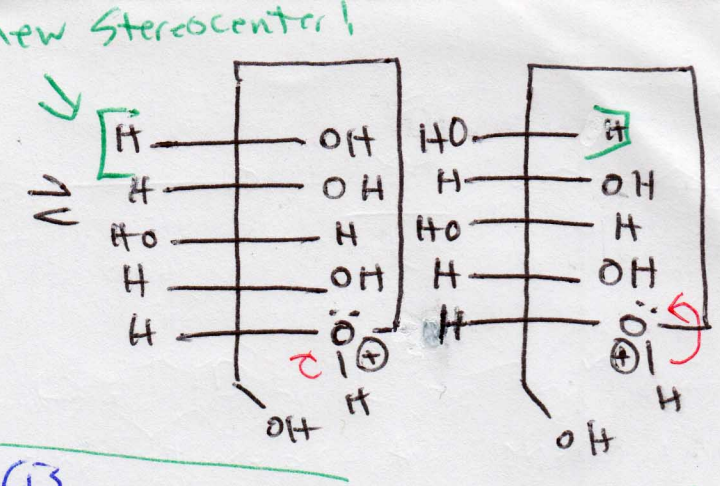 new Stereocenter!
H OH HO H
H OH H OH
HO H HO H
H OH H OH
H Ö H Ö
⊕ ⊕
H H
OH OH
13